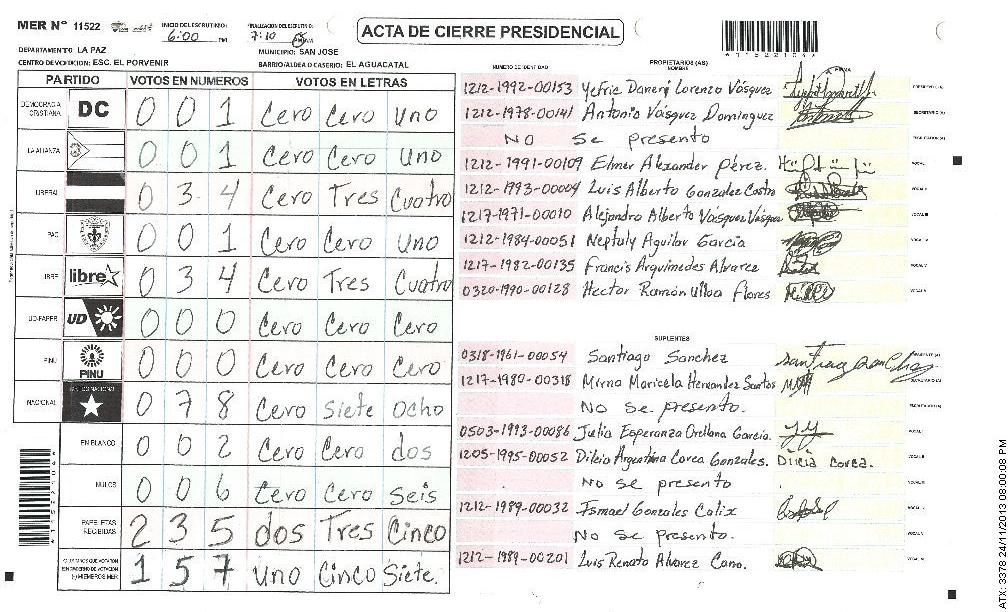 MER Nº 11522
INICIO DEL ESCRUTINIO: 6:00 PM
FINALIZACION DEL ESCRUTINIO: 7:10
ACTA DE CIERRE PRESIDENCIAL
DEPARTAMENTO: LA PAZ
MUNICIPIO: SAN JOSE
CENTRO DE VOTCION: ESC. EL PORVENIR
BARRIO/ALDEA O CASERIO: EL AGUACATAL
PARTIDO VOTOS EN NUMEROS VOTOS EN LETRAS
DEMOCRACIA CRISTIANA DC 0 0 1 Cero Cero Uno
LA ALIANZA 0 0 1 Cero Cero Uno
LIBERAL 0 3 4 Cero Tres Cuatro
PAC 0 0 1 Cero Cero Uno
LIBRE libre 0 3 4 Cero Tres Cuatro
UD-FAPER UD 0 0 0 Cero Cero Cero
PINU PINU 0 0 0 Cero Cero Cero
NACIONAL PARTIDO NACIONAL 0 7 8 Cero Siete Ocho
EN BLANCO 0 0 2 Cero Cero dos
NULOS 0 0 6 Cero Cero Seis
PAPELETAS RECIBIDAS 2 3 5 dos Tres Cinco
1 5 7 Uno Cinco Siete.
NUMERO DE IDENTIDAD PROPIETARIOS (AS) NOMBRE FIRMA
1212-1992-00153 Yefrie Danery Lorenzo Vásquez PRESIDENTE (A)
1212-1978-00141 Antonio Vásquez Dominguez SECRETARIO (A)
No Se presento
1212-1991-00109 Elmer Alexander Pérez. VOCAL I
1212-1993-00004 Luis Alberto Gonzalez Castro VOCAL II
1217-1971-00010 Alejandro Alberto Vásquez Vásquez VOCAL III
1212-1984-00051 Neptaly Aguilar Garcia VOCAL IV
1217-1982-00135 Francis Arquimedes Alvarez VOCAL V
0320-1990-00128 Hector Ramón Ulloa Flores
SUPLENTES
0318-1961-00054 Santiago Sanchez Santiago Sanchez PRESIDENTE (A)
1217-1980-00318 Mirna Maricela Hernandez Santos SECRETARIO (A)
No Se presento.
0503-1993-00086 Julia Esperanza Orellana Garcia. VOCAL I
1205-1995-00052 Dilcia Argentina Corea Gonzales. Dilcia Corea. VOCAL II
No se presento
1212-1989-00032 Ismael Gonzales Calix
No Se presento.
1212-1989-00201 Luis Renato Alvarez Cano.
ATX: 3378 24/11/2013 08:00:08 PM